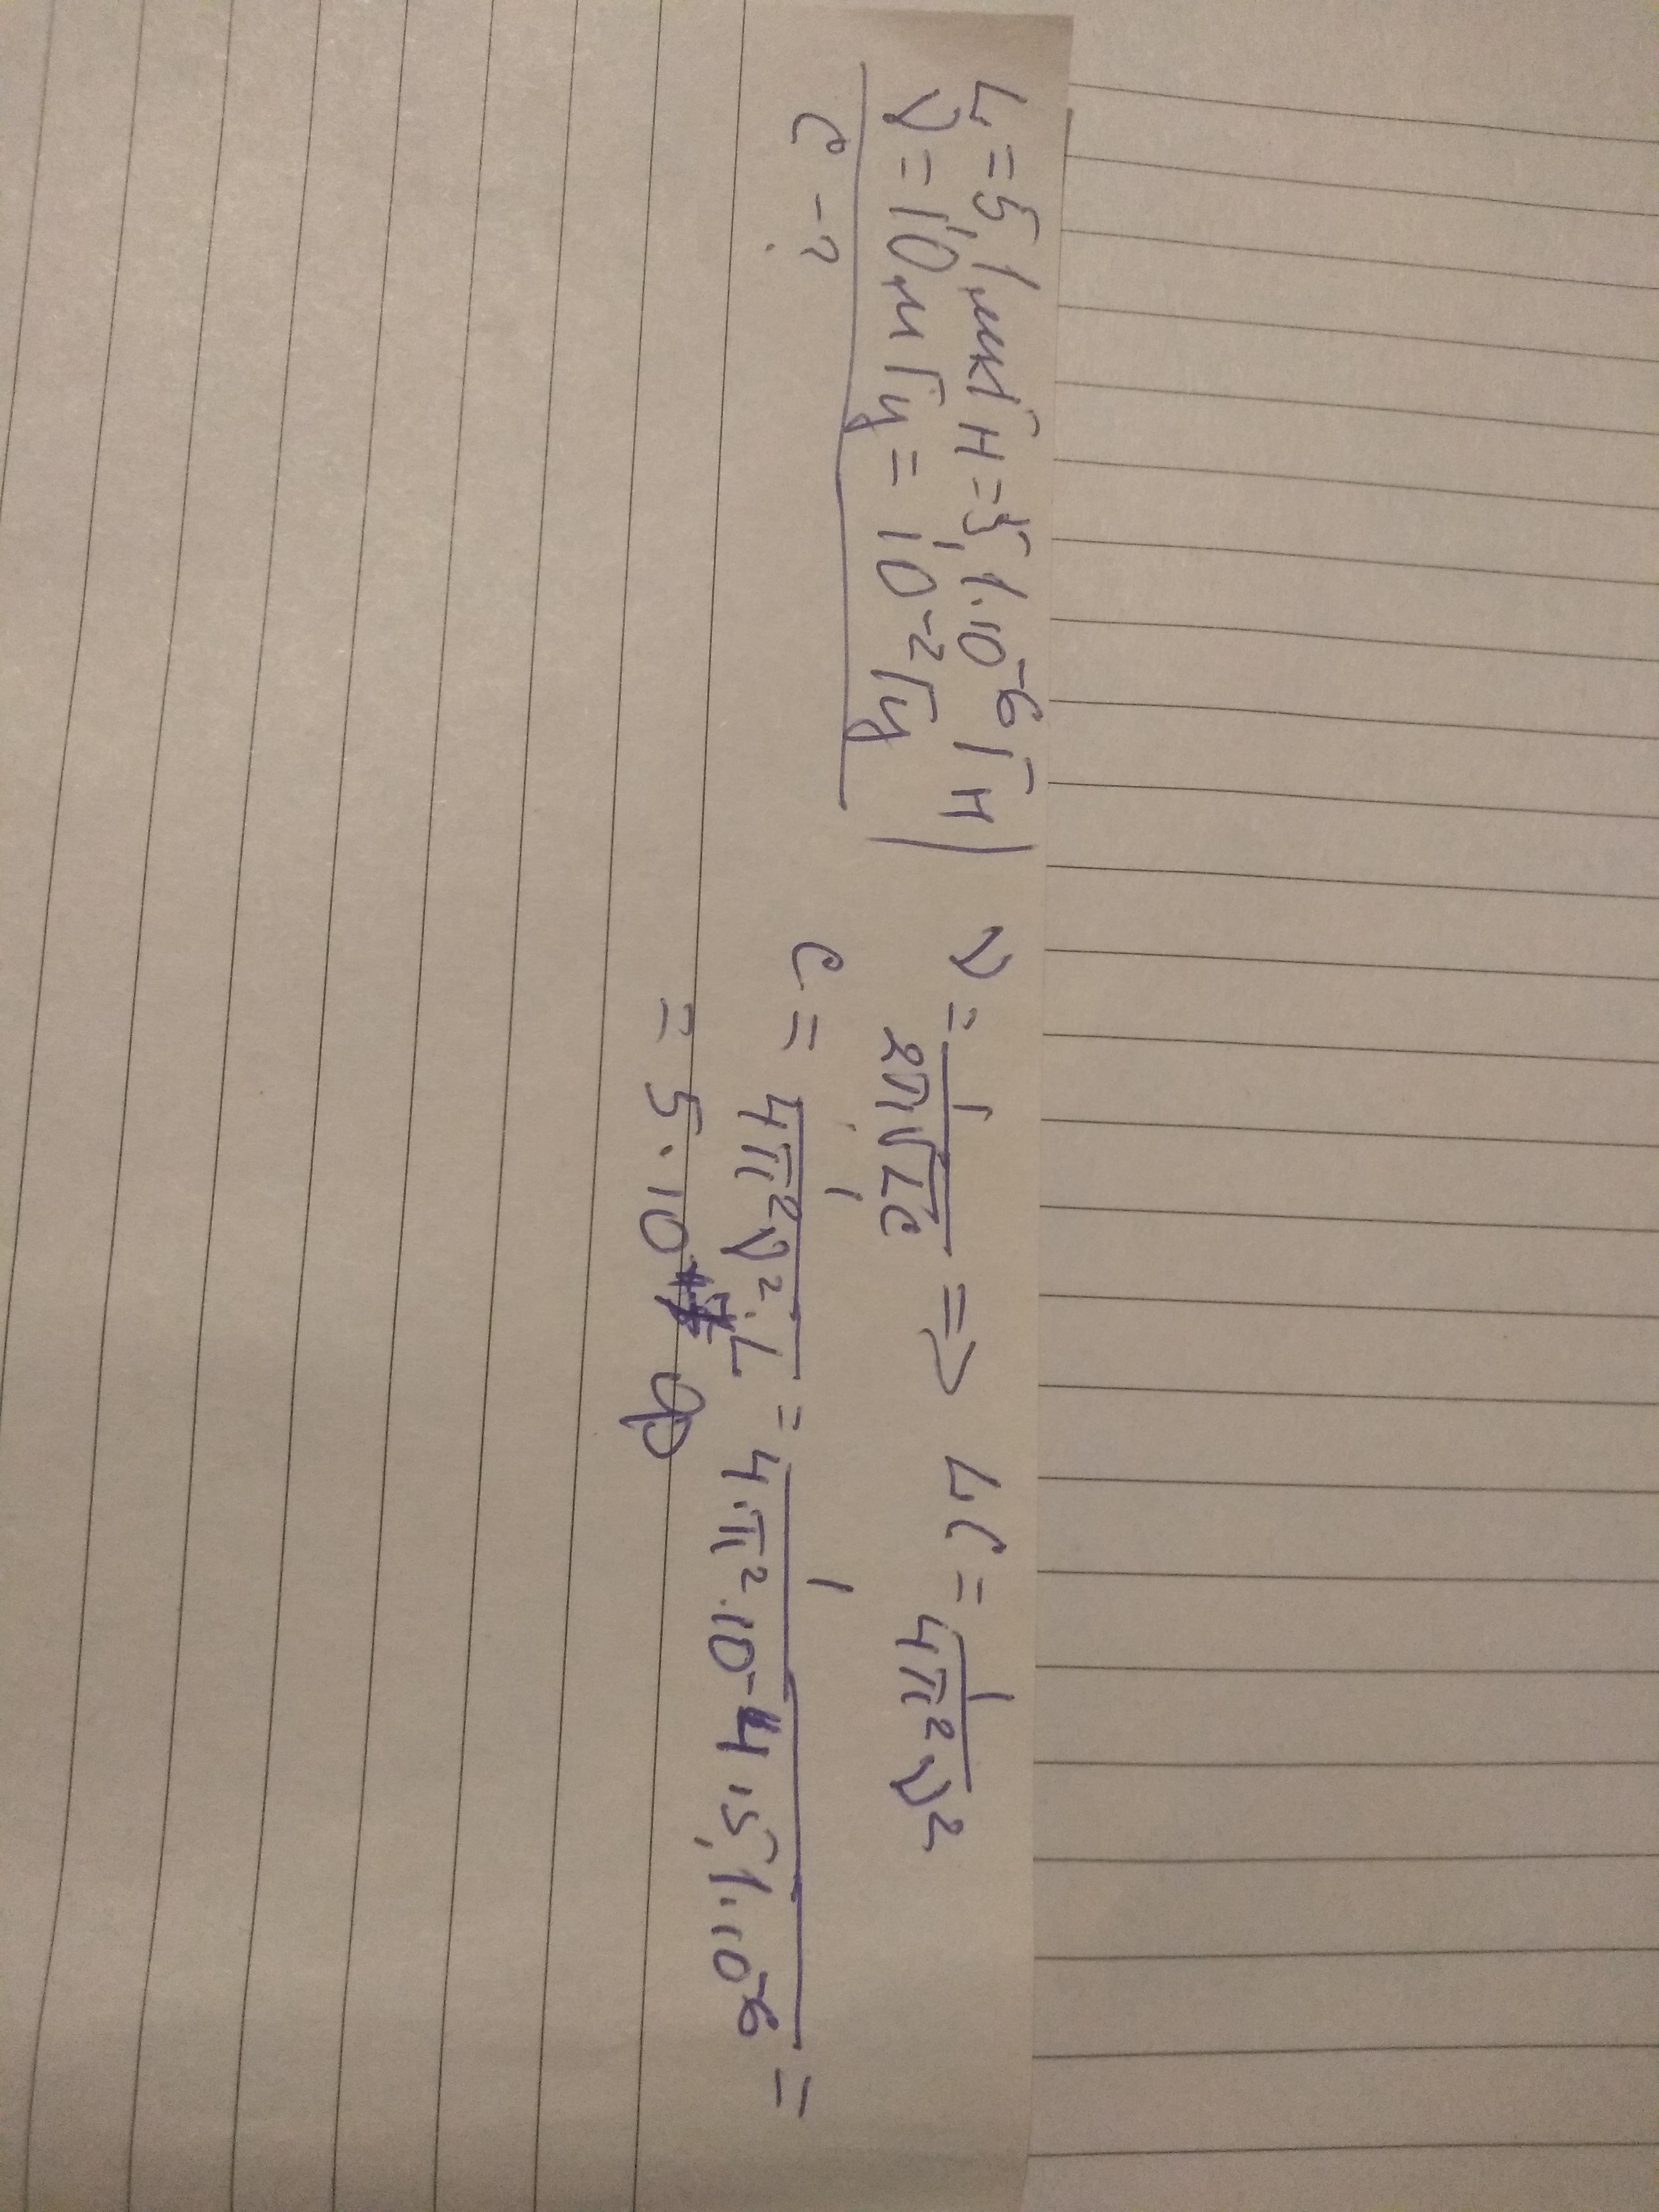 L = 5,1 мкГн = 5,1·10⁻⁶ Гн
ν = 10 мГц = 10⁻² Гц
C - ?
ν = 1/(2π√LC) => LC = 1/(4π²ν²)
C = 1/(4π²ν²·L) = 1/(4·π²·10⁻⁴·5,1·10⁻⁶) =
= 5·10 Ф